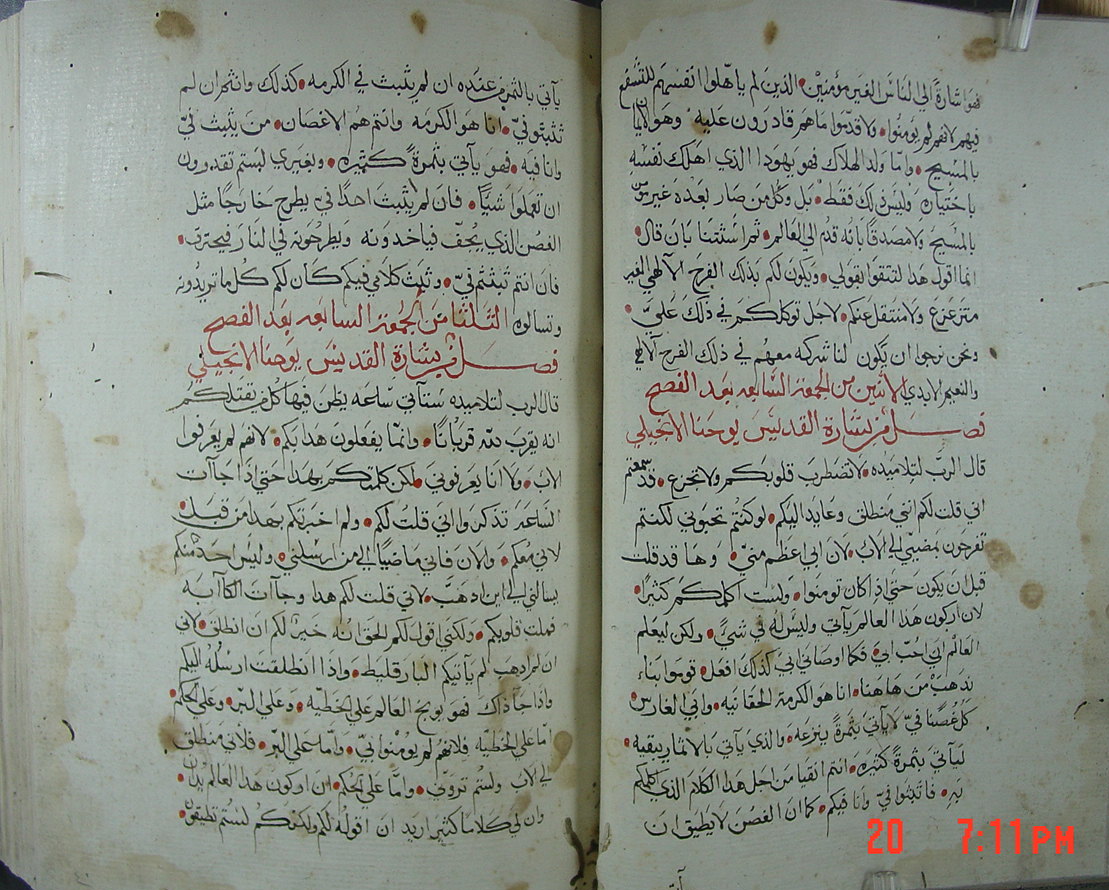 فهو اشارة الى الناس الغير مؤمنين • الذين لم ياهلوا انفسهم للتشفع
فيهم لانهم لم يومنوا • ولا قدموا ما هم قادرون عليه • وهو الايمان
بالمسيح • واما ولد الهلاك فهو يهودا الذي اهلك نفسه
باختياره وليس ذلك فقط • بل وكل من صار بعده غير مومن
بالمسيح ولا مصدقا بانه قدم الى العالم • ثم استثنا بان قال •
انما اقول هذا لتتقوا بقولي • ويكون لكم بذلك الفرح الالهي الغير
متزعزع ولا منتقل عنكم • لاجل توكلكم في ذلك عليّ •
ونحن نرجوا ان يكون لنا شركه معهم في ذلك الفرح الالهي
والنعيم الابدي الاثنين من الجمعة السابعه بعد الفصح
فصل من بشارة القديس يوحنا الانجيلي
قال الرب لتلاميذه • لا تضطرب قلوبكم ولا تجزع • قد سمعتم
اني قلت لكم انني منطلق وعايد اليكم • لو كنتم تحبوني لكنتم
تفرحون بمضيي الى الاب • لان ابي اعظم مني • وها قد قلت
قبل ان يكون حتى اذا كان تومنوا • ولست اكلمكم كثيرا •
لان اركون هذا العالم ياتي وليس له في شي • ولكن ليعلم
العالم اني احب ابي • فكما اوصاني ابي كذلك افعل • قوموا بناء
نذهب من هاهنا • انا هو الكرمة الحقانيه • وابي الغارس •
كل غصنا فيّ لا ياتي بثمرة ينزعه • والذي ياتي بالاثمار ينقيه •
لياتي بثمرة كثيره • انتم انقيا من اجل هذا الكلام الذي كلمتكم
به • فاثبتوا فيّ وانا فيكم • كما ان الغصن لا يطيق ان
ياتي بالثمر من عنده ان لم يثبت في الكرمه • كذلك وانتم ان لم
تثبتو فيّ • انا هو الكرمه وانتم هم الاغصان • من يثبت فيّ
وانا فيه • فهو ياتي بثمرة كثيره • وبغيري لستم تقدرون
ان تعملوا شيّا • فان لم يثبت احدا في يطرح خارجا مثل
الغصن الذي يجف فياخذونه ويطرحونه في النار فيحترق •
فان انتم ثبتم فيّ • وثبت كلامي فيكم كان لكم كل ما تريدونه
وتسالوه الثلثا من الجمعة السابعه بعد الفصح
فصل من بشارة القديس يوحنا الانجيلي
قال الرب لتلاميذه ستاتي ساعه يظن فيها كل من يقتلكم
انه يقرب لله قربانا • وانما يفعلون هذا بكم • لانهم لم يعرفوا
الاب • ولا انا يعرفوني • لكن كلمتكم بهذا حتى اذا جاات
الساعة تذكروا اني قلت لكم • ولم اخبرتكم بهدا من قبل •
لاني معكم • والان فاني ماضيا الى من ارسلني • وليس احد منكم
يسالني الى اين اذهب • لاني قلت لكم هدا وجاات الكآبه
فملت قلوبكم • ولكني اقول لكم الحق انه خيرا لكم ان انطلق • لاني
ان لم اذهب لم ياتيكم البارقليط • واذا انطلقت ارسله اليكم
واذا جا ذاك فهو يوبخ العالم على الخطيه • وعلى البر • وعلى الحكم •
اما على الخطيه فلانهم لم يومنوا بي • واما على البر • فلاني منطلق
الى الاب ولستم تروني • واما على الحكم • ان اركون هذا العالم يدان
وان لي كلاما كثيرا اريد ان اقوله لكم ولكنكم لستم تطيقون •
20 7:11PM